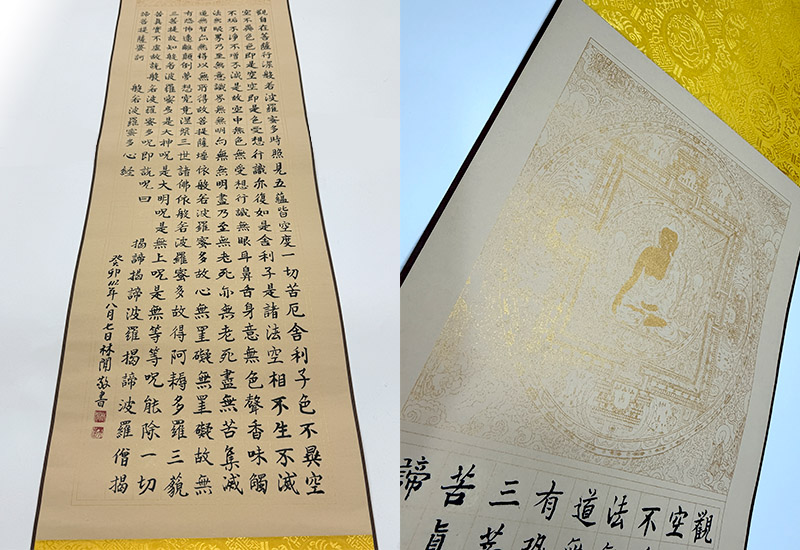 觀自在菩薩行深般若波羅蜜多時照見五蘊皆空度一切苦厄舍利子色不異空
空不異色色即是空空即是色受想行識亦復如是舍利子是諸法空相不生不滅
不垢不淨不增不減是故空中無色無受想行識無眼耳鼻舌身意無色聲香味觸
法無眼界乃至無意識界無無明亦無無明盡乃至無老死亦無老死盡無苦集滅
道無智亦無得以無所得故菩提薩埵依般若波羅蜜多故心無罣礙無罣礙故無
有恐怖遠離顛倒夢想究竟涅槃三世諸佛依般若波羅蜜多故得阿耨多羅三藐
三菩提故知般若波羅蜜多是大神呪是大明呪是無上呪是無等等呪能除一切
苦真實不虛故說般若波羅蜜多呪即說呪曰 揭諦揭諦波羅揭諦波羅僧揭
諦菩提薩婆訶 般若波羅蜜多心經
癸卯 年八月七日林 敬書
觀
空
不
法
道
有恐
三菩
苦真
諦